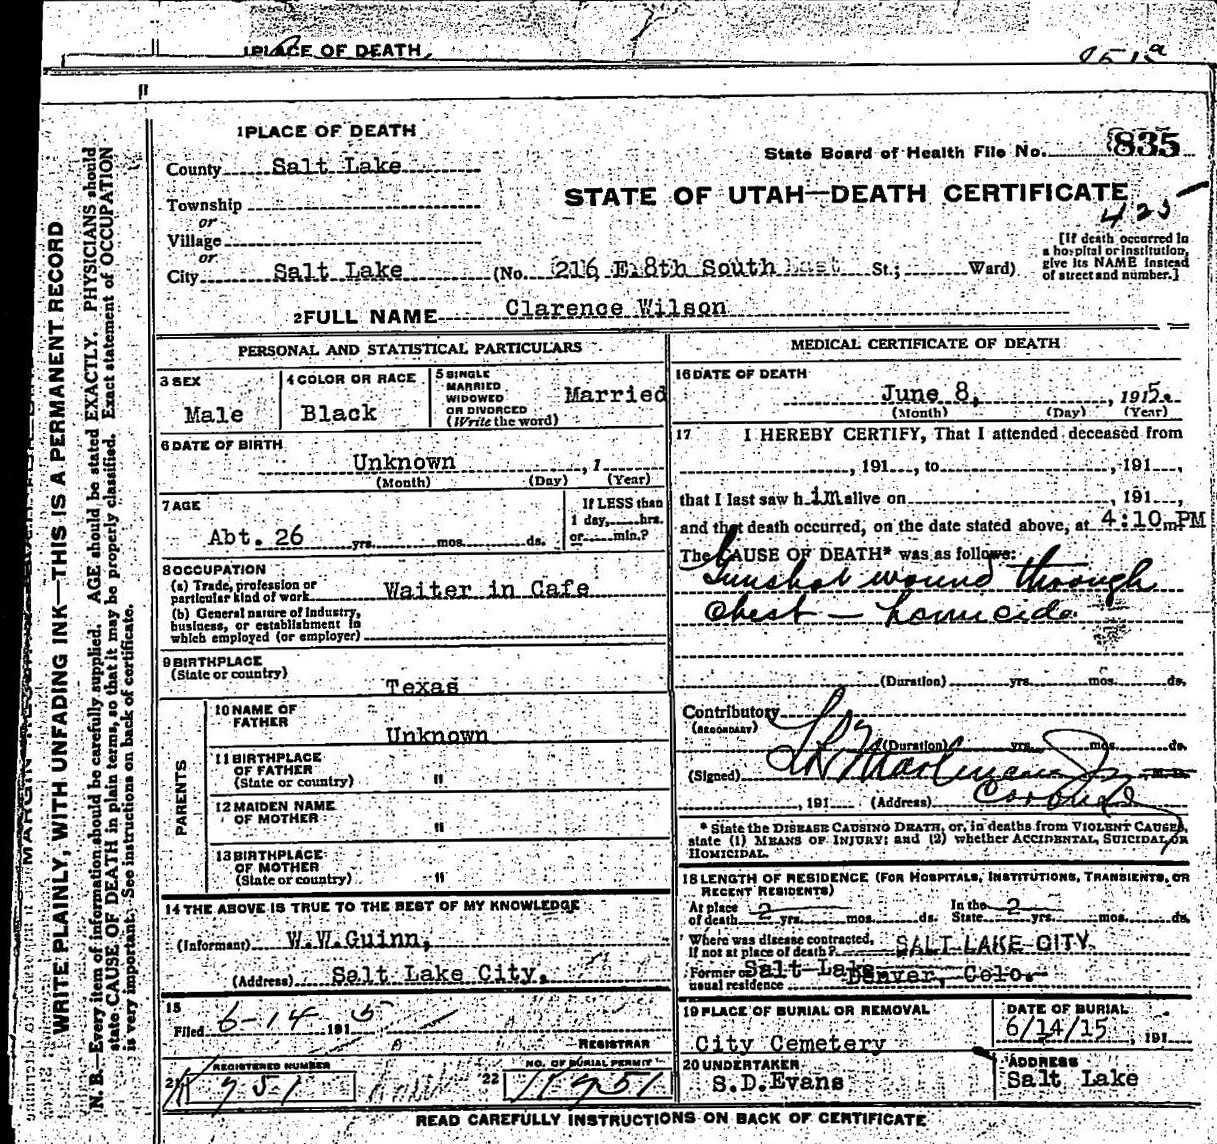 1 PLACE OF DEATH
951a
1 PLACE OF DEATH
County Salt Lake
State Board of Health File No. 835
STATE OF UTAH—DEATH CERTIFICATE
425
Township
or
Village
or
City Salt Lake (No. 216 E. 8th South East St.; Ward)
[If death occurred in
a hospital or institution,
give its NAME instead
of street and number.]
2 FULL NAME Clarence Wilson
PERSONAL AND STATISTICAL PARTICULARS
3 SEX
Male
4 COLOR OR RACE
Black
5 SINGLE
MARRIED
WIDOWED
OR DIVORCED
(Write the word)
Married
6 DATE OF BIRTH
Unknown , 1
(Month) (Day) (Year)
7 AGE
Abt. 26 yrs. mos. ds.
If LESS than
1 day, hrs.
or min.?
8 OCCUPATION
(a) Trade, profession or
particular kind of work Waiter in Cafe
(b) General nature of industry,
business, or establishment in
which employed (or employer)
9 BIRTHPLACE
(State or country)
Texas
PARENTS
10 NAME OF
FATHER
Unknown
11 BIRTHPLACE
OF FATHER
(State or country) "
12 MAIDEN NAME
OF MOTHER
"
13 BIRTHPLACE
OF MOTHER
(State or country) "
14 THE ABOVE IS TRUE TO THE BEST OF MY KNOWLEDGE
(Informant) W.W.Guinn,
(Address) Salt Lake City.
15
Filed 6-14 1915
REGISTRAR
REGISTERED NUMBER
21 951
NO. OF BURIAL PERMIT
22 11951
MEDICAL CERTIFICATE OF DEATH
16 DATE OF DEATH
June 8, , 1915.
(Month) (Day) (Year)
17 I HEREBY CERTIFY, That I attended deceased from
, 191 , to , 191 ,
that I last saw him alive on , 191 ,
and that death occurred, on the date stated above, at 4:10 m. PM
The CAUSE OF DEATH* was as follows:
Gunshot wound through
chest — homicide
(Duration) yrs. mos. ds.
Contributory
(SECONDARY)
(Duration) yrs. mos. ds.
(Signed) M.D.
, 191 (Address)
* State the DISEASE CAUSING DEATH, or, in deaths from VIOLENT CAUSES,
state (1) MEANS OF INJURY; and (2) whether ACCIDENTAL, SUICIDAL, OR
HOMICIDAL.
18 LENGTH OF RESIDENCE (FOR HOSPITALS, INSTITUTIONS, TRANSIENTS, OR
RECENT RESIDENTS)
At place
of death 2 yrs. mos. ds.
In the
State 2 yrs. mos. ds.
Where was disease contracted,
if not at place of death? SALT LAKE CITY.
Former or
usual residence Salt Lake Denver, Colo.
19 PLACE OF BURIAL OR REMOVAL
City Cemetery
DATE OF BURIAL
6/14/15 , 191
20 UNDERTAKER
S.D.Evans
ADDRESS
Salt Lake
READ CAREFULLY INSTRUCTIONS ON BACK OF CERTIFICATE
WRITE PLAINLY, WITH UNFADING INK—THIS IS A PERMANENT RECORD
N. B. Every item of information should be carefully supplied. AGE should be stated EXACTLY. PHYSICIANS should
state CAUSE OF DEATH in plain terms, so that it may be properly classified. Exact statement of OCCUPATION
is very important. See instructions on back of certificate.